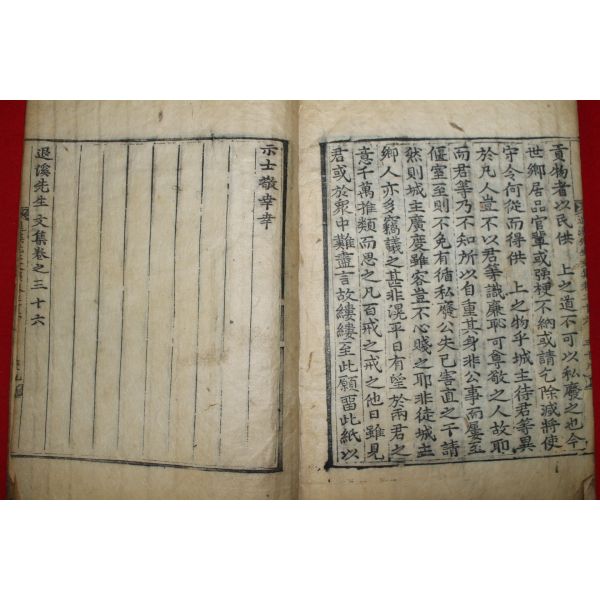 貢物者以民供　上之道不可以私廢之也今
世鄕居品官輩或强梗不納或請乞除减將使
守令何從而得供　上之物乎城主待君等異
於凡人豈不以君等識廉耻可尊敬之人故耶
而君等乃不知所以自重其身非公事而屢至
偃室至則不免有循私廢公失己害直之干請
然則城主廣度雖容豈不心賤之耶非徒城主
鄕人亦多竊議之甚非滉平日有望於兩君之
意千萬推類而思之凡百戒之戒之他日雖見
君或於衆中難盡言故縷縷至此願留此紙以
示士敬幸幸
退溪先生文集卷之三十六